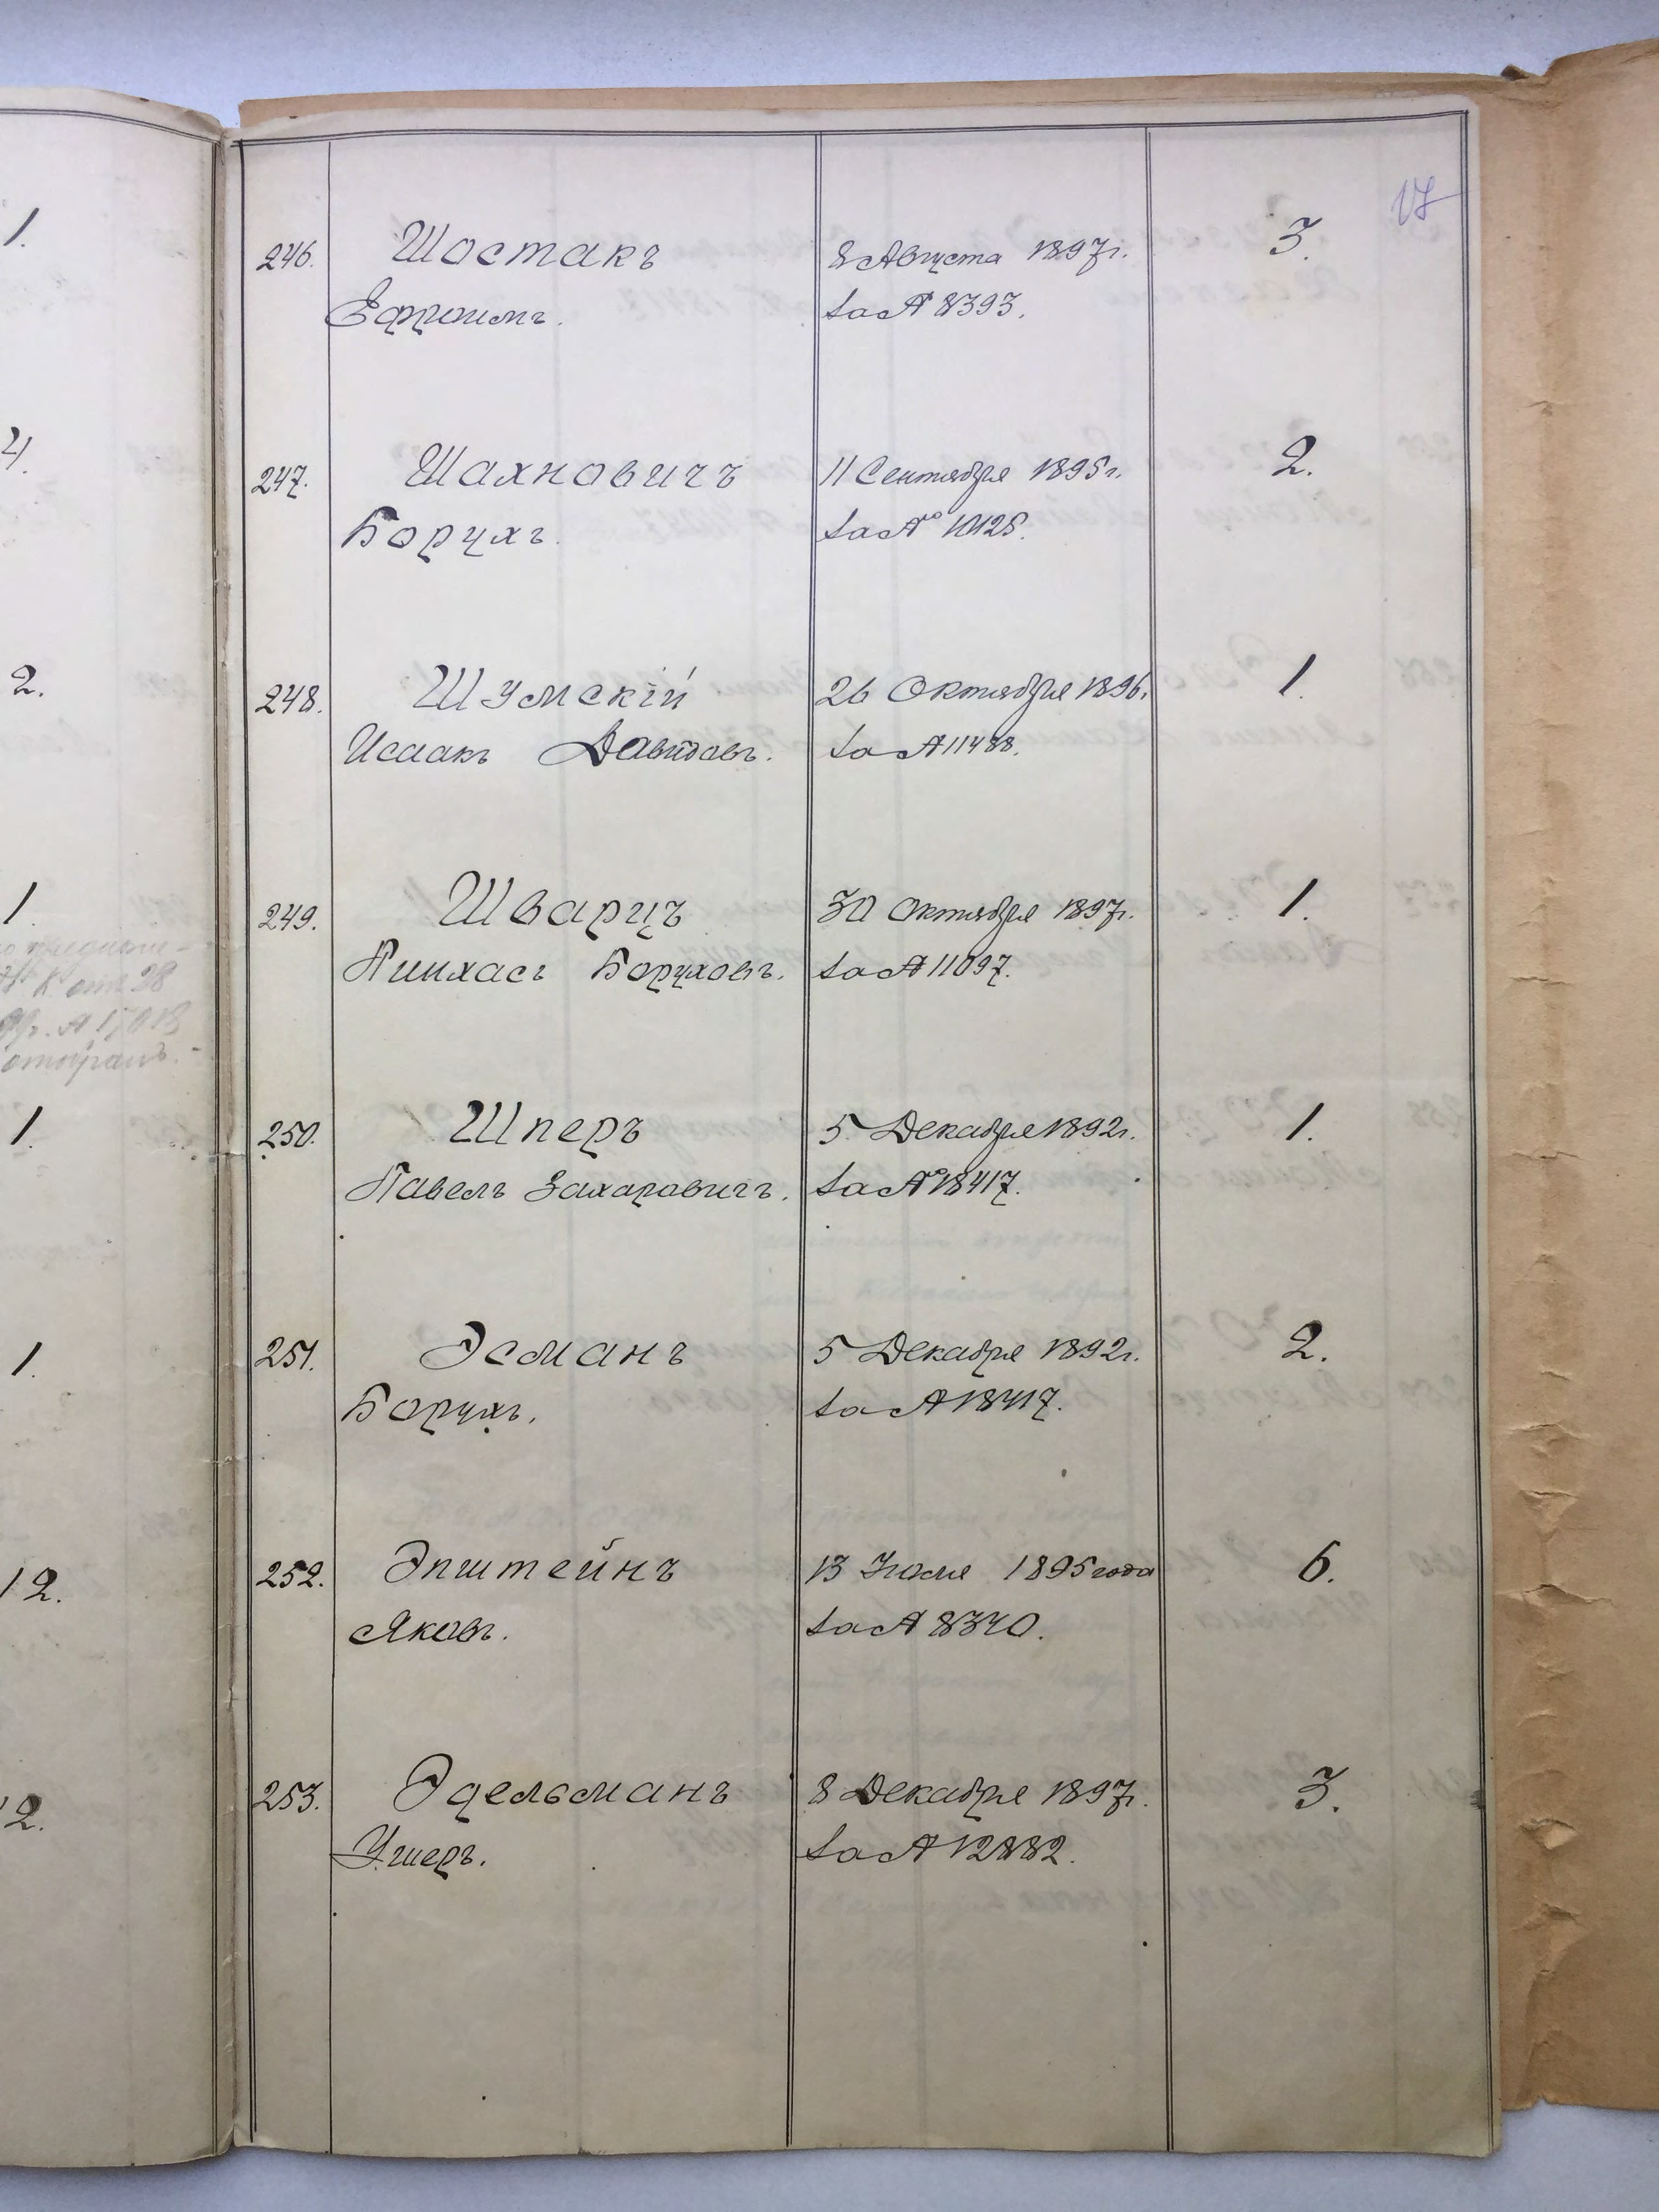 17
246. Шостакъ 8 Августа 1897г. 3.
Ефроимъ. за № 8393.
247. Шахновичъ 11 Сентября 1895г. 2.
Борухъ. за № 10125.
248. Шумскій 26 Октября 1896г. 1.
Исаакъ Давидовъ. за № 11488.
249. Шварцъ 30 Октября 1897г. 1.
Пинхасъ Боруховъ. за № 11097.
250. Шперъ 5 Декабря 1892г. 1.
Павелъ Захаровичъ. за № 18417.
251. Эсманъ 5 Декабря 1892г. 2.
Борухъ. за № 18417.
252. Эпштейнъ 13 Іюля 1895 года 6.
Яковъ. за № 8340.
253. Эдельманъ 8 Декабря 1897г. 3.
Ушеръ. за №
1.
4.
2.
1.
1.
1.
12.
12.